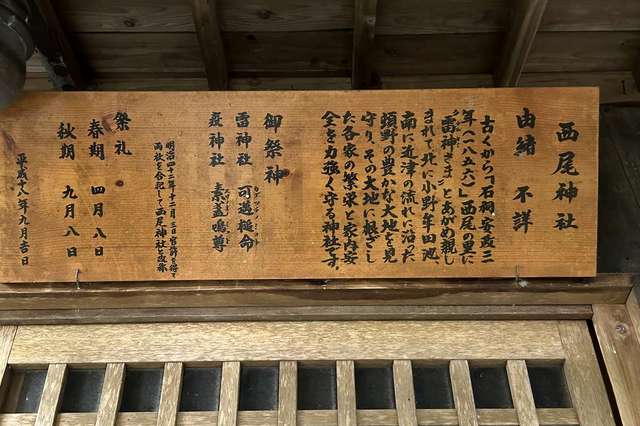 西尾神社
由緒 不詳
古くから「石祠安政三
年(一八五六)」西尾の里に
〝雷神さま〟とあがめ親し
まれて北に小野牟田池、
南に近津の流れに沿った
頃野の豊かな大地を見
守り、その大地に根ざし
た各家の繁栄と家内安
全を力強く守る神社です。
御祭神
雷神社 可遇槌命
疫神社 素盞鳴尊
明治四十二年十二月三日官許を得て
両社を合祀して西尾神社と改称
祭礼
春期 四月八日
秋期 九月八日
平成十八年九月吉日